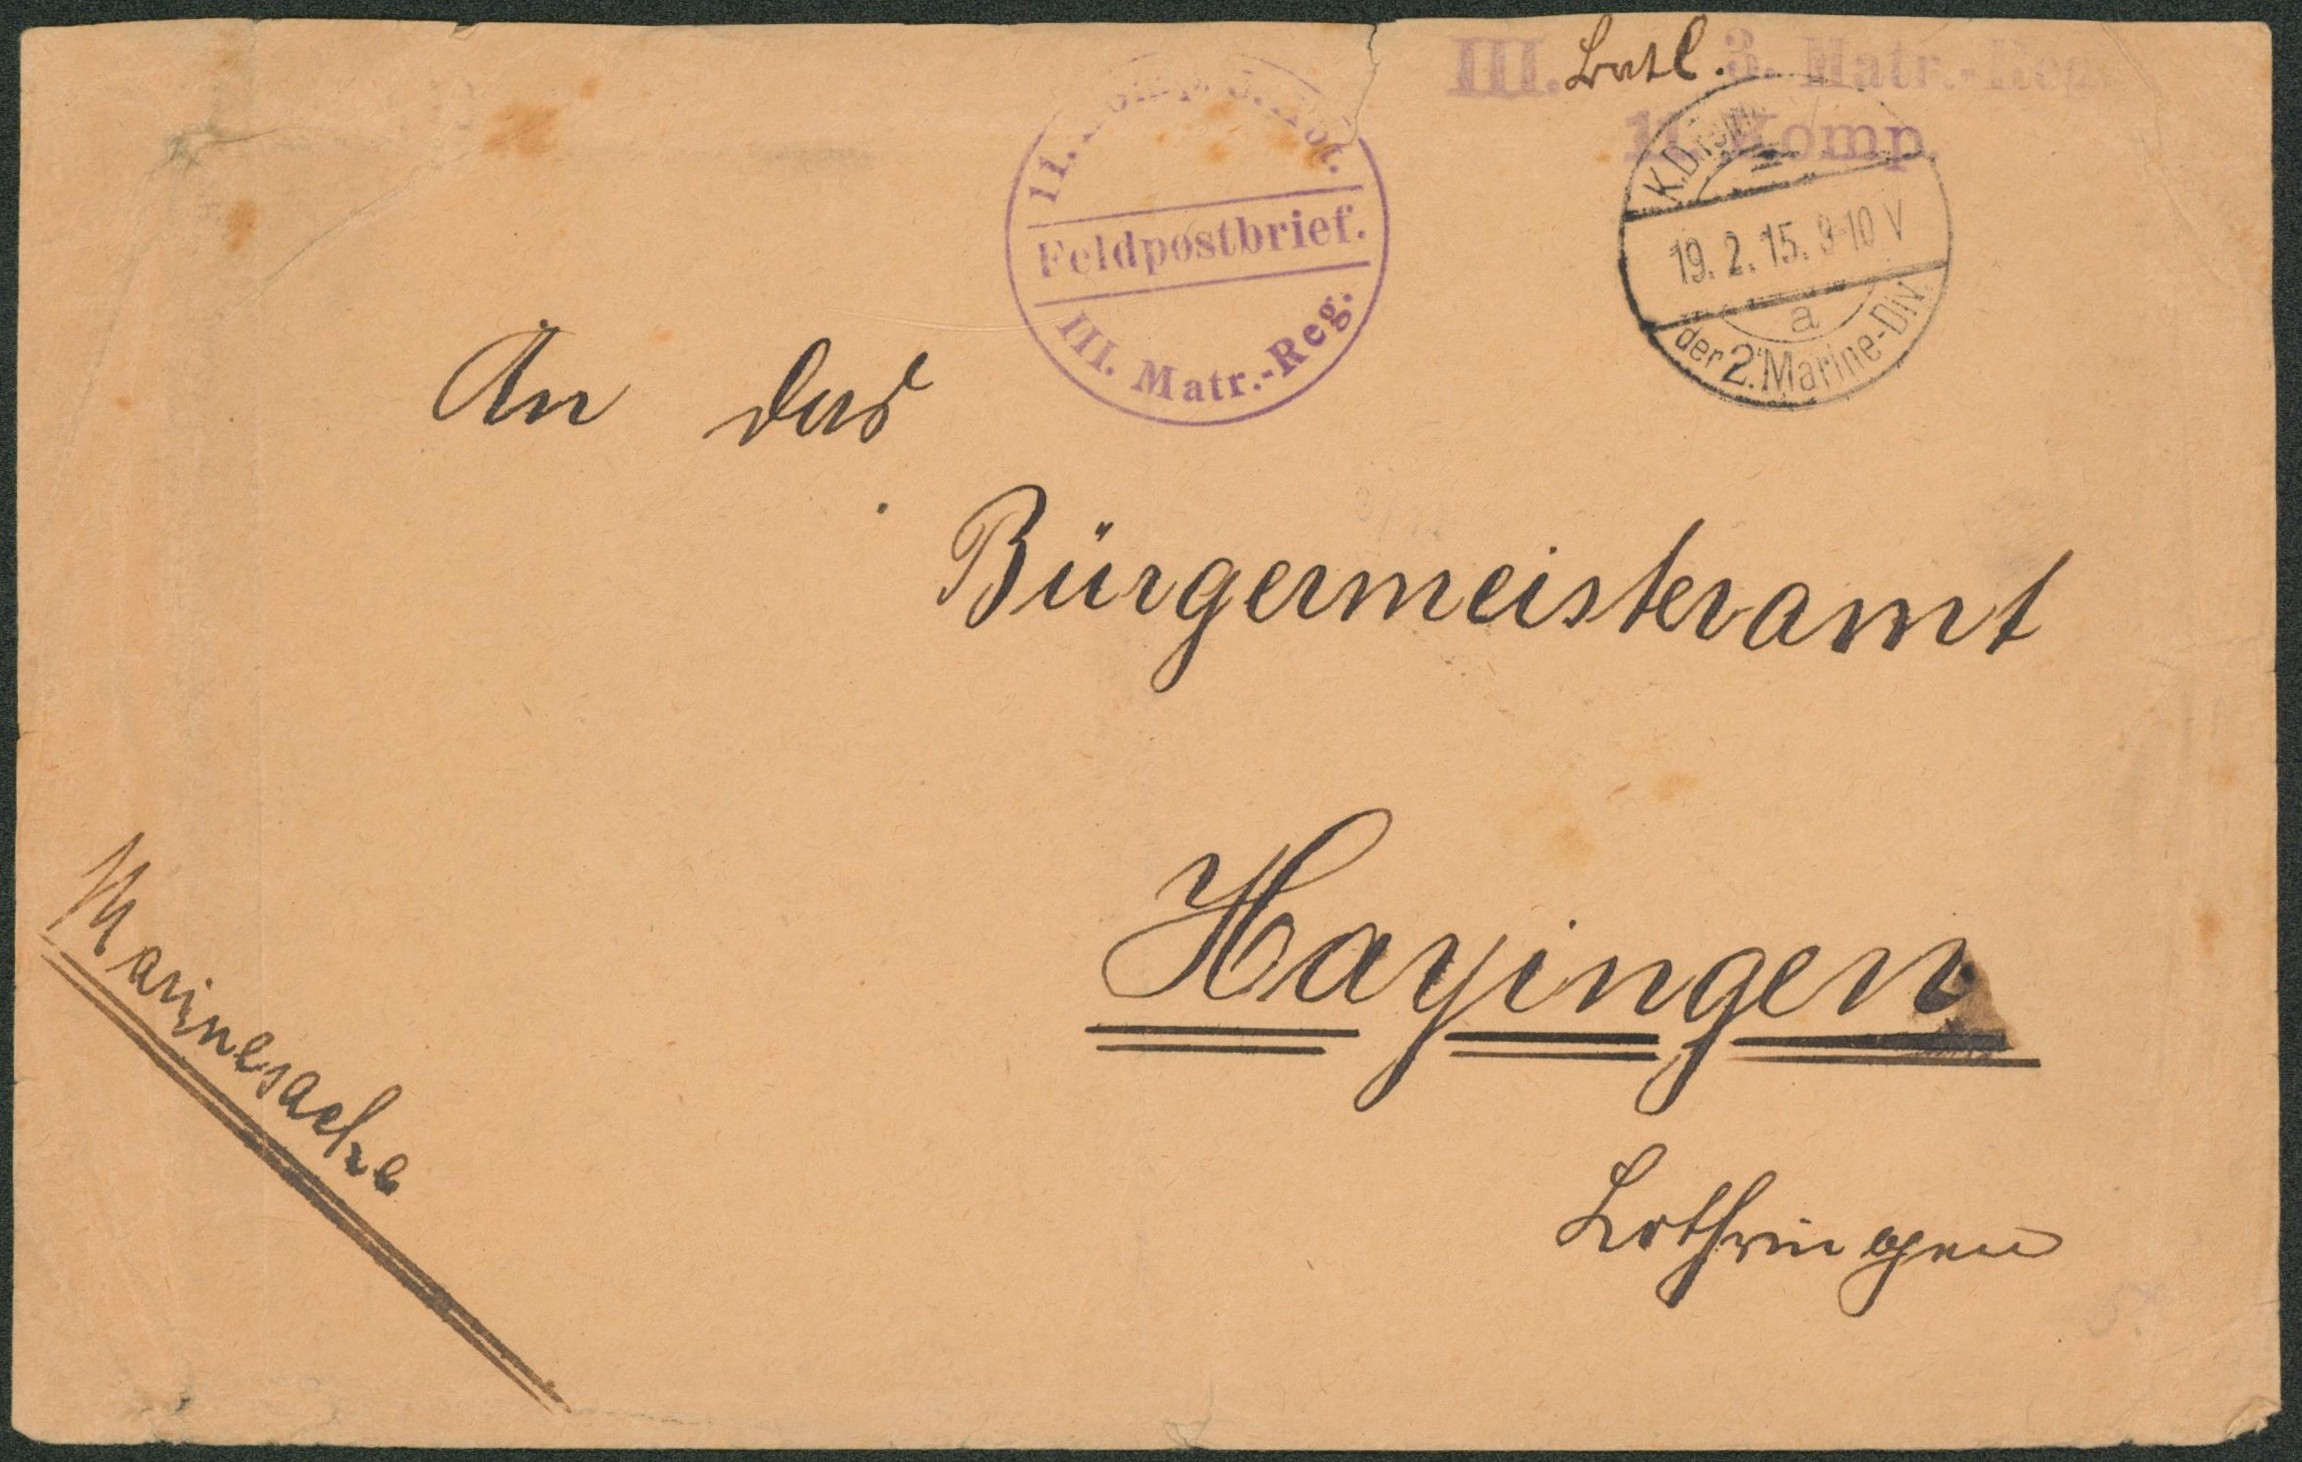 III. Batl. 3. Matr.-Reg.
11. Komp.
11. Komp. 3.
Feldpostbrief.
III. Matr.-Reg.
K.D. Feldp
19. 2. 15. 9-10 V
a
der 2. Marine-Div.
An das
Bürgermeisteramt
Hayingen
Lothringen
Marinesache